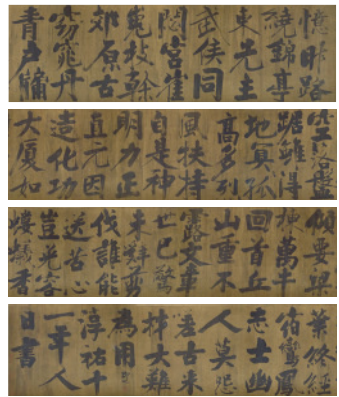 憶昨路
繞錦亭
東先主
武侯同
閟宮崔
嵬枝幹
郊原古
窈窕丹
青戶牖
空落々盤
踞雖得
地冥々孤
高多烈
風扶持
自是神
明力正
直元因
造化功
大厦如
傾要梁
棟萬牛
回首丘
山重不
露文章
世已驚
未辭剪
伐誰能
送苦心
豈免容
螻蟻香
葉終經
宿鸞鳳
志士幽
人莫怨
嗟古來
材大難
為用
淳祐十
一年人
日書